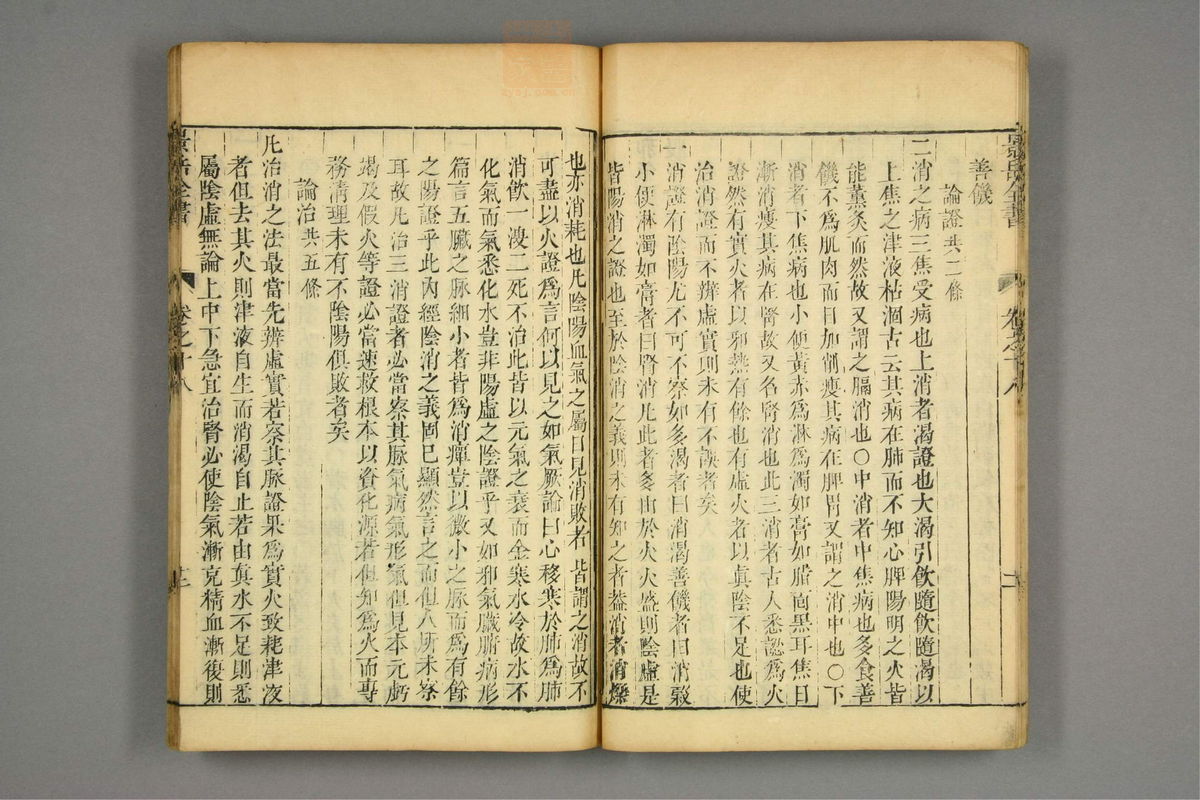 景岳全書 卷之十八 二
善饑
論證共二條
三消之病三焦受病也上消者渴證也大渴引飲隨飲隨渴以
上焦之津液枯涸古云其病在肺而不知心脾陽明之火皆
能薰炙而然故又謂之膈消也○中消者中焦病也多食善
饑不爲肌肉而日加削瘦其病在脾胃又謂之消中也○下
消者下焦病也小便黃赤爲淋爲濁如膏如脂面黑耳焦日
漸消瘦其病在腎故又名腎消也此三消者古人悉認爲火
證然有實火者以邪熱有餘也有虛火者以眞陰不足也使
治消證而不辨虛實則未有不誤者矣
一消證有陰陽尤不可不察如多渴者曰消渴善饑者曰消穀
小便淋濁如膏者曰腎消凡此者多由於火火盛則陰虛是
皆陽消之證也至於陰消之義則未有知之者葢消者消爍
也亦消耗也凡陰陽血氣之屬日見消敗者皆謂之消故不
可盡以火證爲言何以見之如氣厥論曰心移寒於肺爲肺
消飲一溲二死不治此皆以元氣之衰而金寒水冷故水不
化氣而氣悉化水豈非陽虛之陰證乎又如邪氣臟腑病形
篇言五臟之脉細小者皆爲消癉豈以微小之脉而爲有餘
之陽證乎此內經陰消之義固已顯然言之而但人所未察
耳故凡治三消證者必當察其脉氣病氣形氣但見本元虧
竭及假火等證必當速救根本以資化源若但知爲火而專
務清理未有不陰陽俱敗者矣
論治共五條
凡治消之法最當先辨虛實若察其脉證果爲實火致耗津液
者但去其火則津液自生而消渴自止若由眞水不足則悉
屬陰虛無論上中下急宜治腎必使陰氣漸充精血漸復則
景岳全書 卷之十八 三